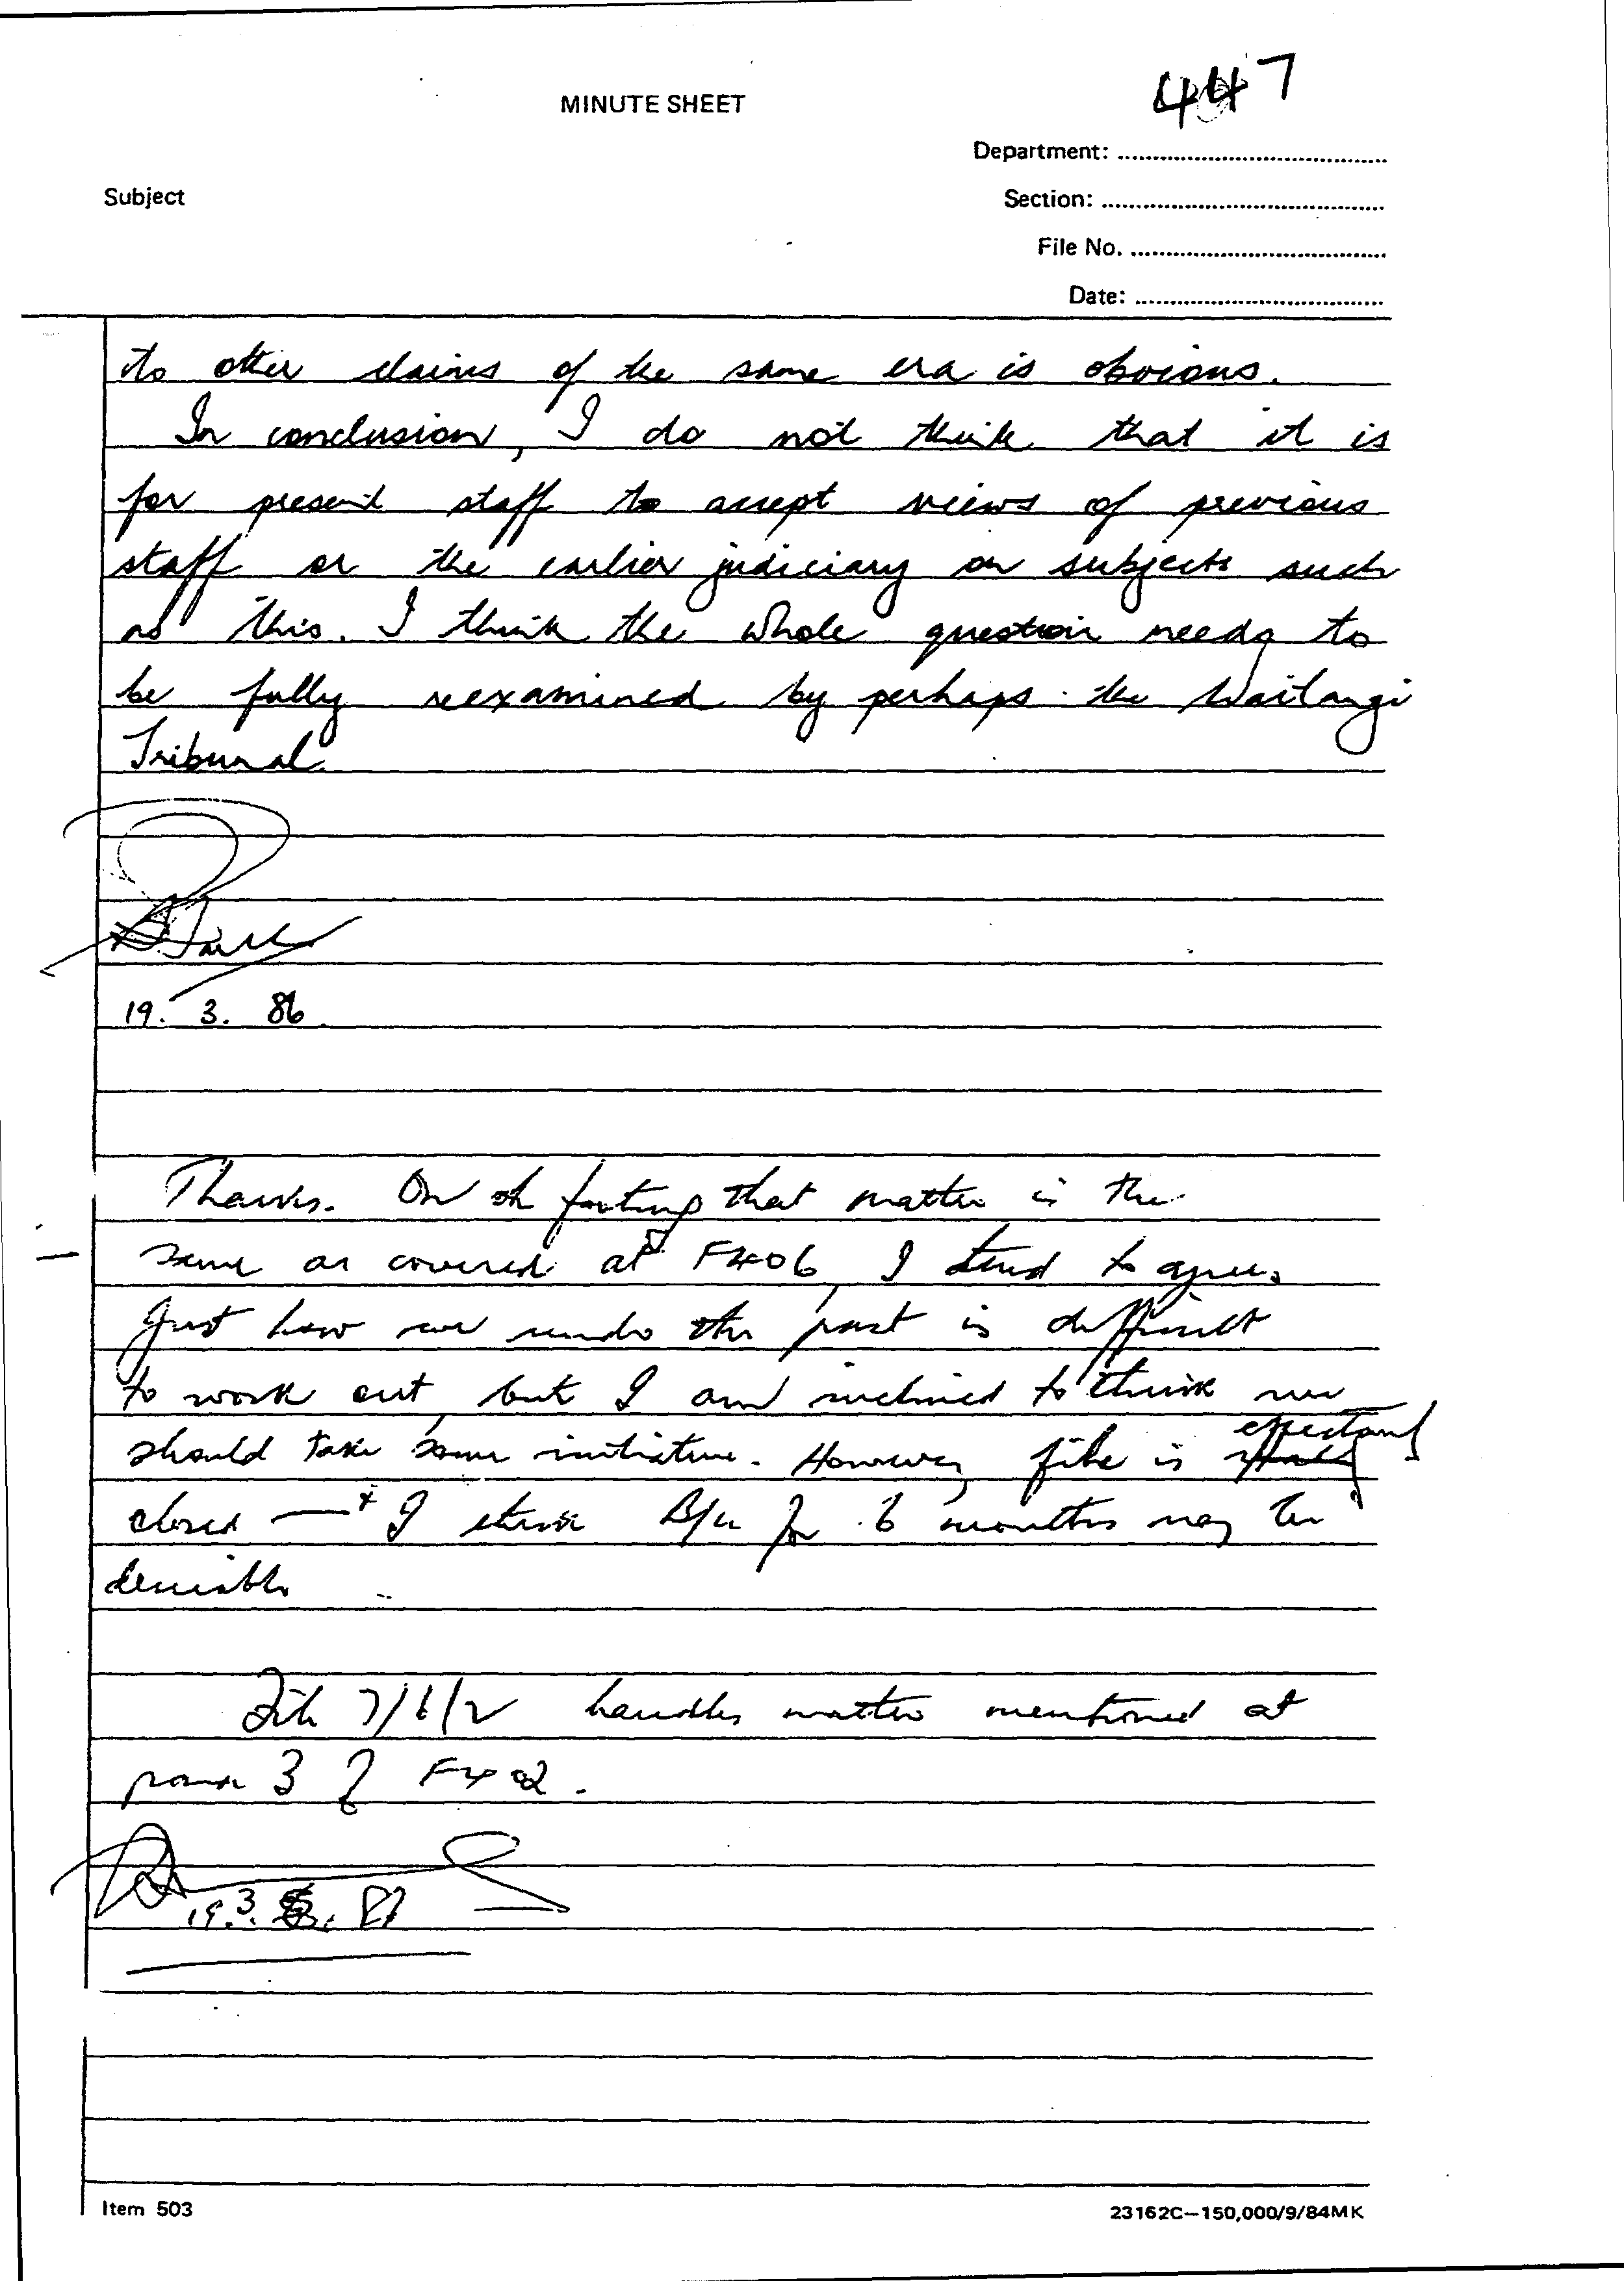 447
MINUTE SHEET
Department:
Subject
Section:
File No.
Date:
to other claims of the same era is obvious.
In conclusion, I do not think that it is
for present staff to accept views of previous
staff or the earlier judiciary on subjects such
as this. I think the whole question needs to
be fully reexamined by perhaps the Waitangi
Tribunal.
19. 3. 86
Thanks. On the footing that matter is the
same as covered at F406, I tend to agree.
Just how we undo the past is difficult
to work out, but I am inclined to think we
should take some initiative. However, file is effectively
closed — + I think B/u for 6 months may be
desirable
File 7/6/2 handles matter mentioned at
para 3 of F402.
19.3.
Item 503
23162C—150,000/9/84MK